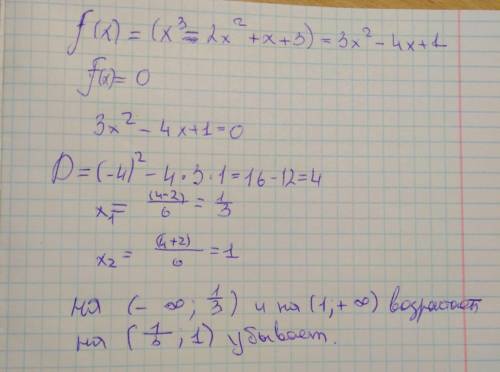 f(x) = (x³ = 2x² + x + 3) = 3x² - 4x + 1
f(x) = 0
3x² - 4x + 1 = 0
D = (-4)² - 4 · 3 · 1 = 16 - 12 = 4
x₁ = (4-2)/6 = 1/3
x₂ = (4+2)/6 = 1
на (- ∞; 1/3) и на (1, + ∞) возрастает
на (1/3, 1) убывает.